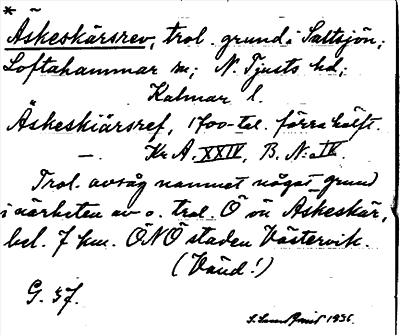 *
Äskeskärsrev, trol. grund i Saltsjön;
Loftahammar sn; N. Tjusts hd;
Kalmar l.
Äskeskiärsref, 1700-tal. förra hälft.
— . Kr A. XXIV, B. N:o IV.
Trol. avsåg namnet något grund
i närheten av o. trol. Ö om Äskeskär,
bel. 7 km. ÖNÖ staden Västervik.
(Vänd!)
G. 37.
1936.